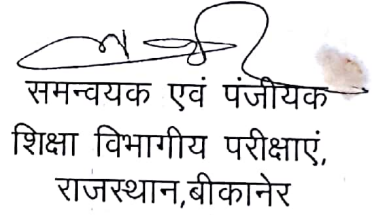 समन्वयक एवं पंजीयक
शिक्षा विभागीय परीक्षाएं,
राजस्थान,बीकानेर